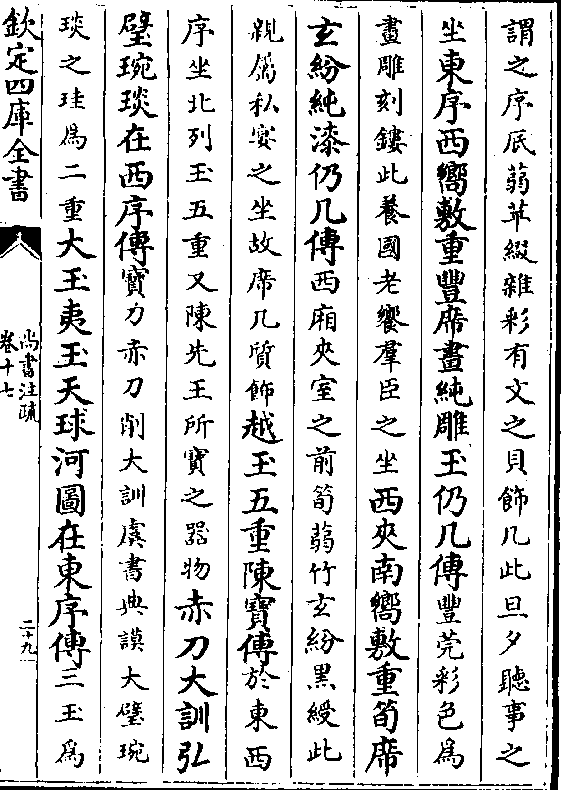 謂之序厎蒻苹綴雜彩有文之貝飾几此旦夕聽事之
坐東序西嚮敷重豐席畫純雕玉仍几傳豐莞彩色為
畫雕刻鏤此養國老饗羣臣之坐西夾南嚮敷重筍席
玄紛純漆仍几傳西廂夾室之前筍蒻竹玄紛黑綬此
親屬私宴之坐故席几質飾越玉五重陳寶傳於東西
序坐北列玉五重又陳先王所寶之器物赤刀大訓弘
璧琬琰在西序傳寶刀赤刀削大訓虞書典謨大璧琬
琰之珪為二重大玉夷玉天球河圖在東序傳三玉為
欽定四庫全書
尚書注疏
卷十七
二十九